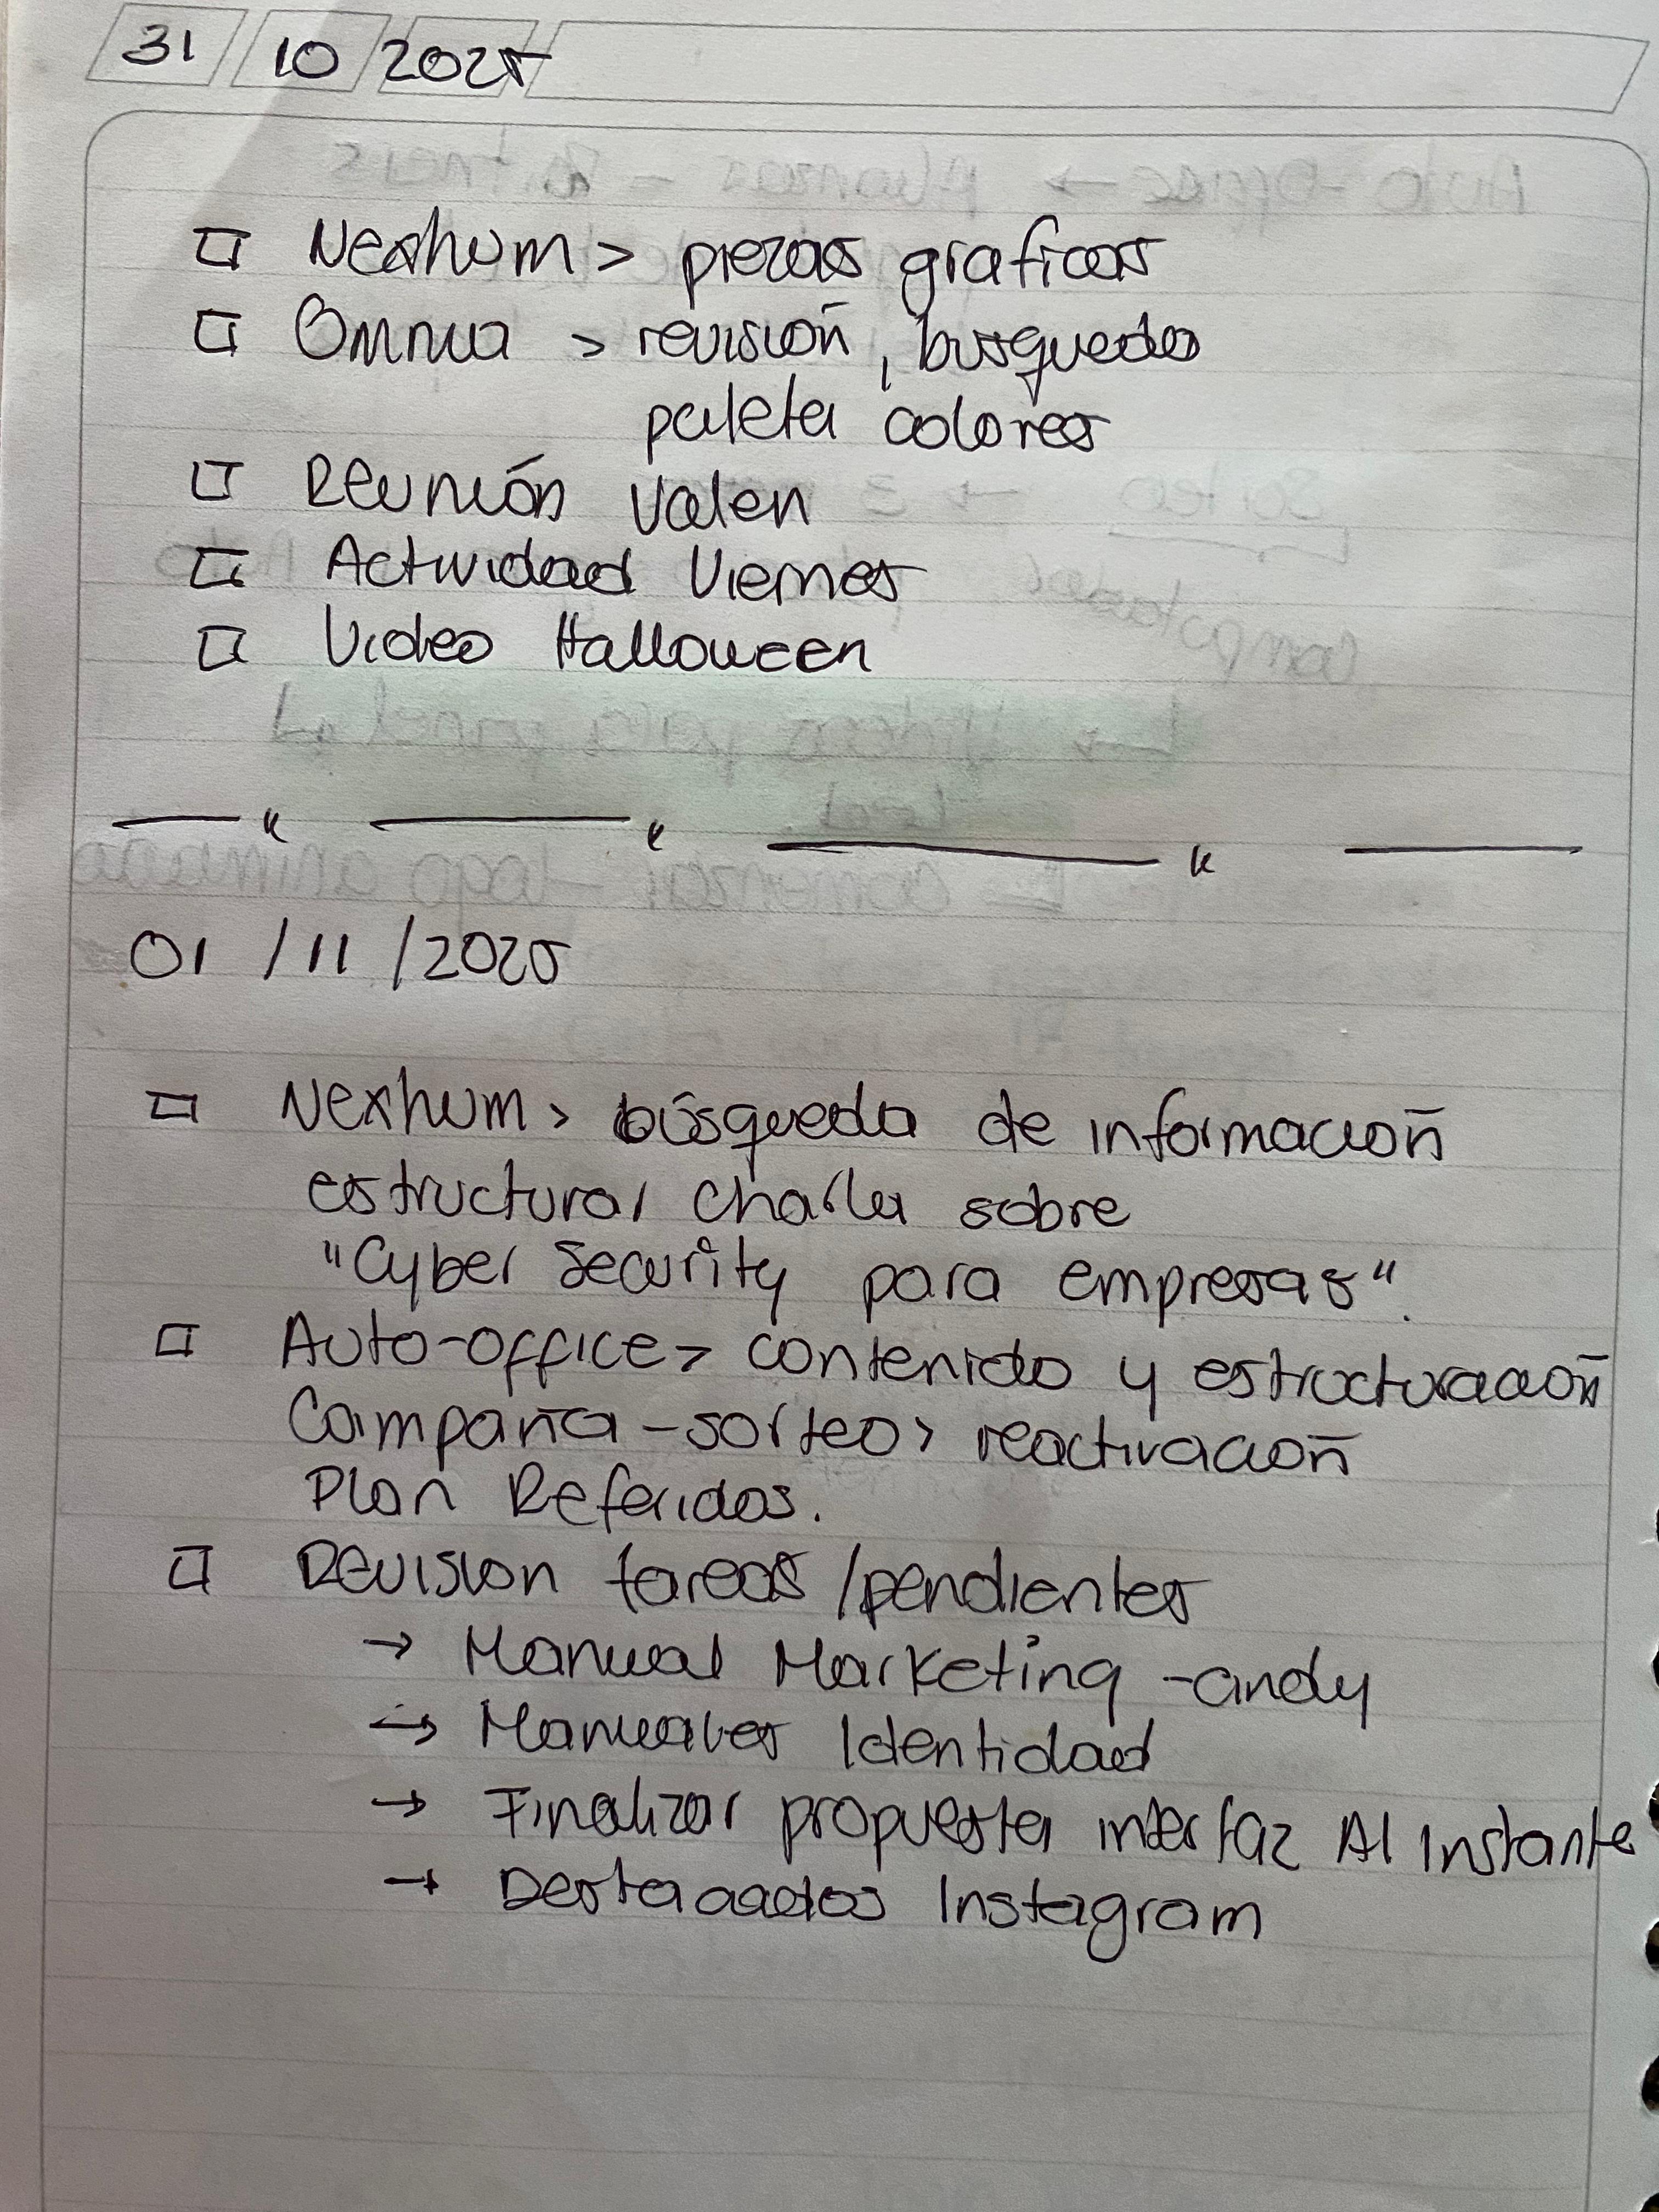 31 / 10 / 2025
□ Nexhum > piezas graficas
□ Omnia > revisión, busqueda
paleta colores
□ Reunión Valen
□ Actividad Viernes
□ Video Halloween
01 / 11 / 2025
□ Nexhum > búsqueda de información
estructural charla sobre
"Cyber Security para empresas".
□ Auto-office > contenido y estructuración
Campaña - sorteo > reactivación
Plan Referidos.
□ Revision tareas / pendientes
→ Manual Marketing - andy
→ Manuales Identidad
→ Finalizar propuesta interfaz Al Instante
→ Destacados Instagram